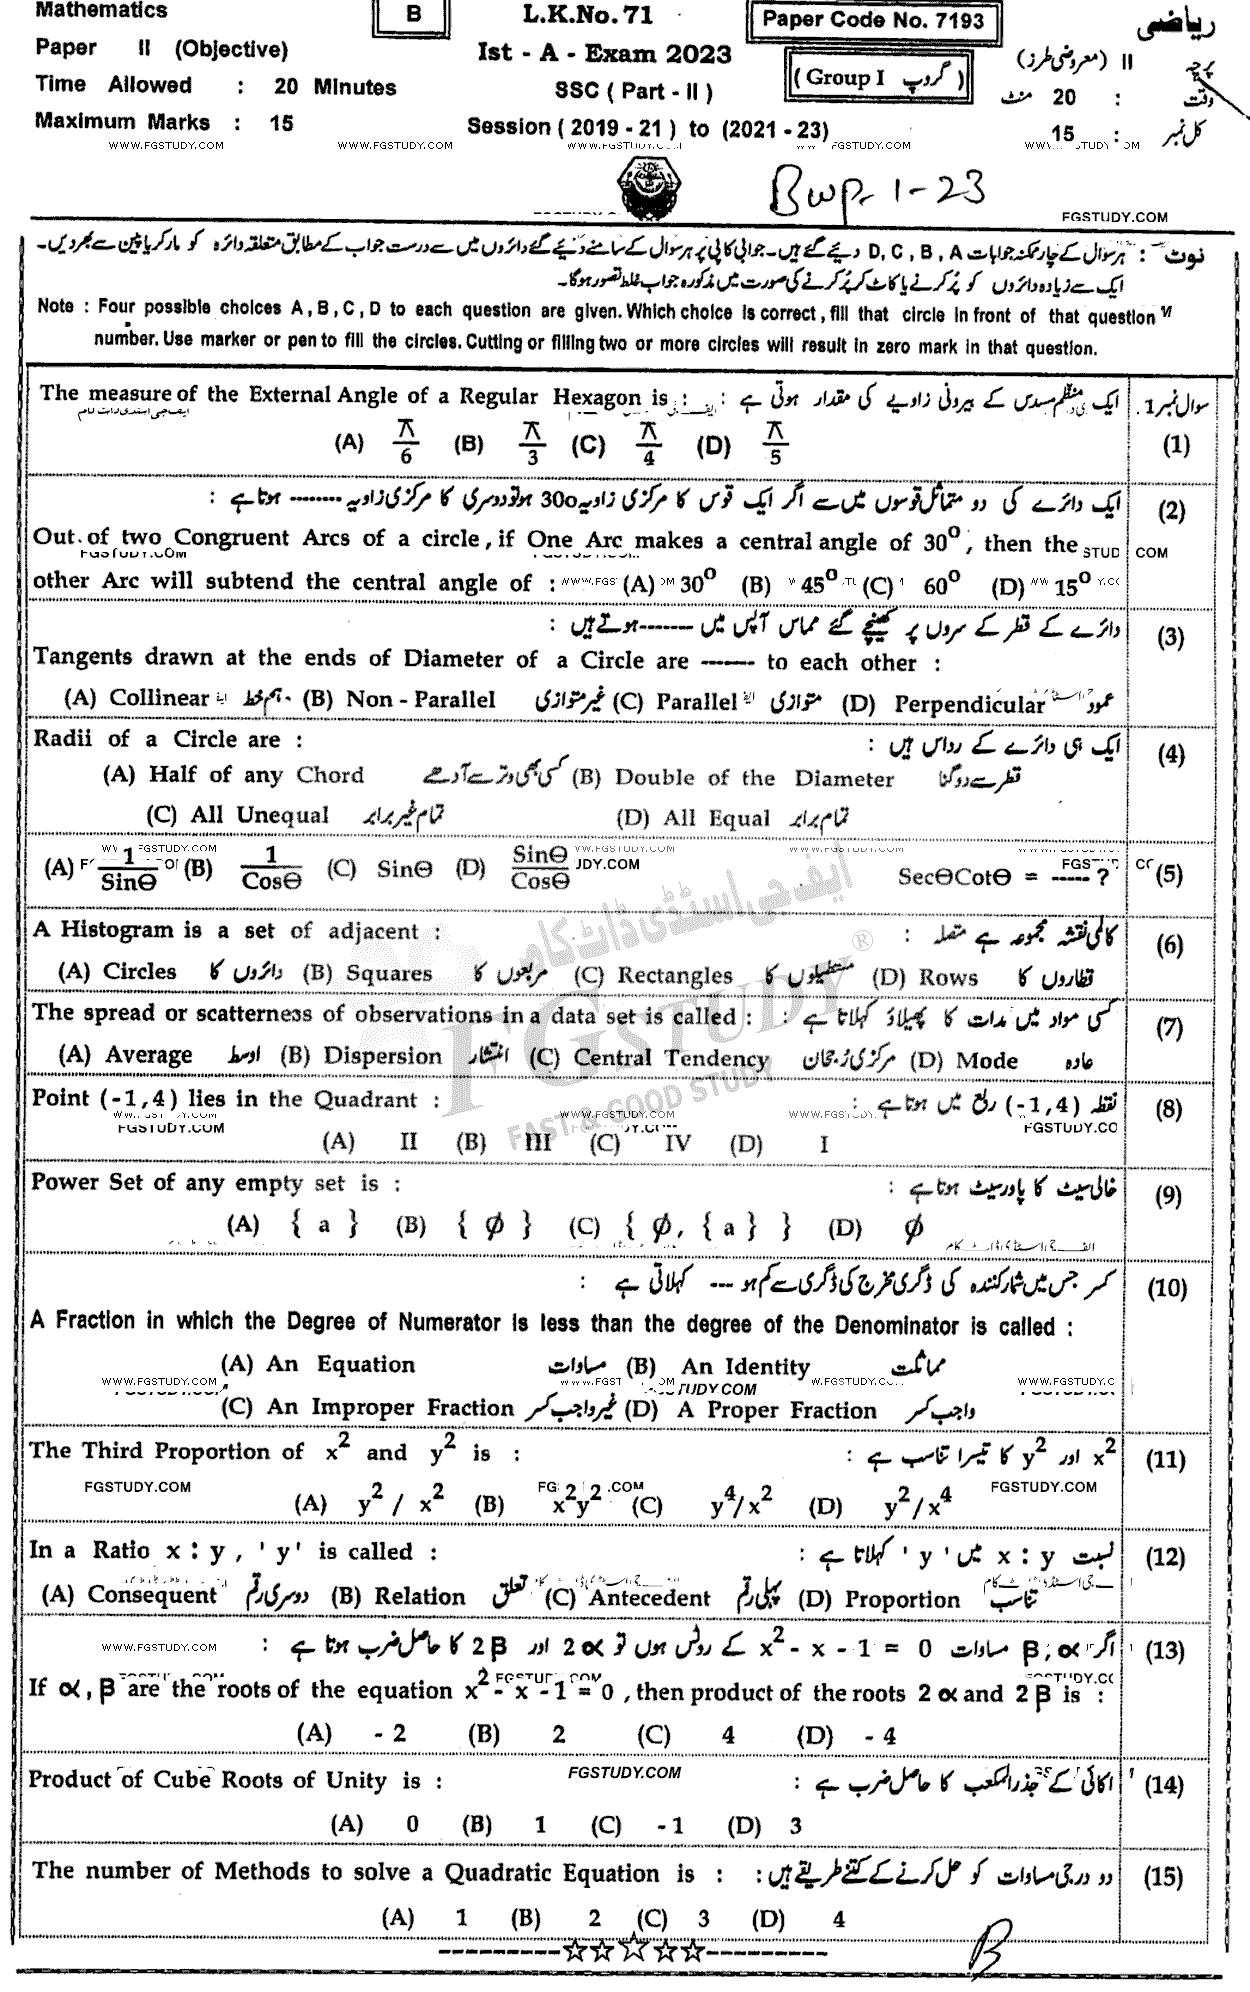 Mathematics B L.K.No. 71 Paper Code No. 7193 ریاضی
Paper II (Objective) Ist - A - Exam 2023 (Group I گروپ) پرچہ II (معروضی طرز)
Time Allowed : 20 Minutes SSC ( Part - II ) وقت : 20 منٹ
Maximum Marks : 15 Session ( 2019 - 21 ) to (2021 - 23) کل نمبر : 15
WWW.FGSTUDY.COM WWW.FGSTUDY.COM
Bwp-1-23
FGSTUDY.COM
نوٹ : ہر سوال کے چار ممکنہ جوابات D, C, B, A دیئے گئے ہیں۔ جوابی کاپی پر ہر سوال کے سامنے دیئے گئے دائروں میں سے درست جواب کے مطابق متعلقہ دائرہ کو مارکر یا پین سے بھر دیں۔
ایک سے زیادہ دائروں کو پُر کرنے یا کاٹ کر پُر کرنے کی صورت میں مذکورہ جواب غلط تصور ہوگا۔
Note : Four possible choices A, B, C, D to each question are given. Which choice is correct, fill that circle in front of that question
number. Use marker or pen to fill the circles. Cutting or filling two or more circles will result in zero mark in that question.
The measure of the External Angle of a Regular Hexagon is : ایک منظم مسدس کے بیرونی زاویے کی مقدار ہوتی ہے : سوال نمبر 1.
(A) π/6 (B) π/3 (C) π/4 (D) π/5 (1)
ایک دائرے کی دو متماثل قوسوں میں سے اگر ایک قوس کا مرکزی زاویہ 30o ہو تو دوسری کا مرکزی زاویہ -------- ہوتا ہے : (2)
Out of two Congruent Arcs of a circle, if One Arc makes a central angle of 30°, then the
other Arc will subtend the central angle of : (A) 30° (B) 45° (C) 60° (D) 15°
دائرے کے قطر کے سروں پر کھینچے گئے مماس آپس میں -------ہوتے ہیں : (3)
Tangents drawn at the ends of Diameter of a Circle are ------ to each other :
(A) Collinear ہم خط (B) Non - Parallel غیر متوازی (C) Parallel متوازی (D) Perpendicular عمود
Radii of a Circle are : ایک ہی دائرے کے رداس ہیں : (4)
(A) Half of any Chord کسی بھی وتر سے آدھے (B) Double of the Diameter قطر سے دوگنا
(C) All Unequal تمام غیر برابر (D) All Equal تمام برابر
(A) 1/SinΘ (B) 1/CosΘ (C) SinΘ (D) SinΘ/CosΘ SecΘCotΘ = ----- ? (5)
A Histogram is a set of adjacent : کالمی نقشہ مجموعہ ہے متصلہ : (6)
(A) Circles دائروں کا (B) Squares مربعوں کا (C) Rectangles مستطیلوں کا (D) Rows قطاروں کا
The spread or scatterness of observations in a data set is called : کسی مواد میں مدات کا پھیلاؤ کہلاتا ہے : (7)
(A) Average اوسط (B) Dispersion انتشار (C) Central Tendency مرکزی رجحان (D) Mode عادہ
Point (-1,4) lies in the Quadrant : نقطہ (-1,4) ربع میں ہوتا ہے : (8)
(A) II (B) III (C) IV (D) I
Power Set of any empty set is : خالی سیٹ کا پاور سیٹ ہوتا ہے : (9)
(A) { a } (B) { φ } (C) { φ, { a } } (D) φ
کسر جس میں شمار کنندہ کی ڈگری مخرج کی ڈگری سے کم ہو --- کہلاتی ہے : (10)
A Fraction in which the Degree of Numerator is less than the degree of the Denominator is called :
(A) An Equation مساوات (B) An Identity مماثلت
(C) An Improper Fraction غیر واجب کسر (D) A Proper Fraction واجب کسر
The Third Proportion of x² and y² is : x² اور y² کا تیسرا تناسب ہے : (11)
(A) y² / x² (B) x²y² (C) y⁴/x² (D) y²/x⁴
In a Ratio x : y, 'y' is called : نسبت x : y میں 'y' کہلاتا ہے : (12)
(A) Consequent دوسری رقم (B) Relation تعلق (C) Antecedent پہلی رقم (D) Proportion تناسب
اگر α, β مساوات x² - x - 1 = 0 کے روٹس ہوں تو 2α اور 2β کا حاصل ضرب ہوتا ہے : (13)
If α, β are the roots of the equation x² - x - 1 = 0, then product of the roots 2α and 2β is :
(A) - 2 (B) 2 (C) 4 (D) - 4
Product of Cube Roots of Unity is : FGSTUDY.COM اکائی کے جذر المکعب کا حاصل ضرب ہے : (14)
(A) 0 (B) 1 (C) -1 (D) 3
The number of Methods to solve a Quadratic Equation is : دو درجی مساوات کو حل کرنے کے کتنے طریقے ہیں : (15)
(A) 1 (B) 2 (C) 3 (D) 4
B
ایف جی اسٹڈی ڈاٹ کام
FGSTUDY ®
FAST & GOOD STUDY